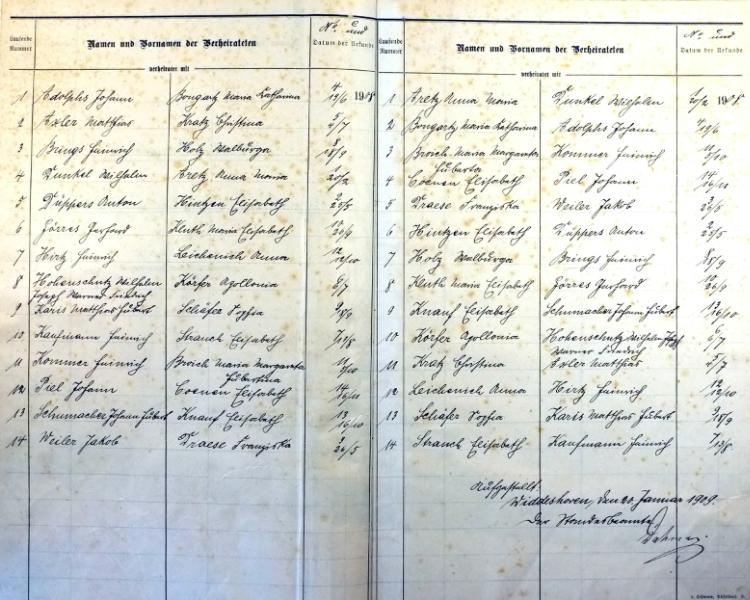 Laufende Nummer Namen und Vornamen der Verheirateten No und Datum der Urkunde
verheiratet mit
1 Adolphs Johann Bongartz Maria Katharina 4 19/6 1908
2 Axler Matthias Kratz Christina 5/7
3 Brings Heinrich Holz Walburga 28/9
4 Dunkel Wilhelm Aretz Anna Maria 20/2
5 Düppers Anton Hintzen Elisabeth 23/5
6 Görres Gerhard Kluth Maria Elisabeth 10 26/9
7 Hirtz Heinrich Leichenich Anna 12 12/10
8 Hohenschutz Wilhelm Körfer Apollonia 6/7
Joseph Werner Friedrich
9 Karis Matthias Hubert Schäfer Sophia 9 18/9
10 Kaufmann Heinrich Strauch Elisabeth 7 12/8
11 Kommer Heinrich Broich Maria Margareta 11 5/10
Hubertina
12 Piel Johann Coenen Elisabeth 14 16/11
13 Schumacher Johann Hubert Knauf Elisabeth 13 16/10
14 Weiler Jakob Draese Franziska 3 26/5
Laufende Nummer Namen und Vornamen der Verheirateten No und Datum der Urkunde
verheiratet mit
1 Aretz Anna Maria Dunkel Wilhelm 20/2 1908
2 Bongartz Maria Katharina Adolphs Johann 4 19/6
3 Broich Maria Margareta Kommer Heinrich 11 5/10
Hubertina
4 Coenen Elisabeth Piel Johann 14 16/11
5 Draese Franziska Weiler Jakob 3 26/5
6 Hintzen Elisabeth Düppers Anton 23/5
7 Holz Walburga Brings Heinrich 28/9
8 Kluth Maria Elisabeth Görres Gerhard 10 26/9
9 Knauf Elisabeth Schumacher Johann Hubert 13 16/10
10 Körfer Apollonia Hohenschutz Wilhelm Joseph 6/7
Werner Friedrich
11 Kratz Christina Axler Matthias 5/7
12 Leichenich Anna Hirtz Heinrich 12 12/10
13 Schäfer Sophia Karis Matthias Hubert 9 18/9
14 Strauch Elisabeth Kaufmann Heinrich 7 12/8
Aufgestellt
Widdeshoven, den 20. Januar 1909.
Der Standesbeamte